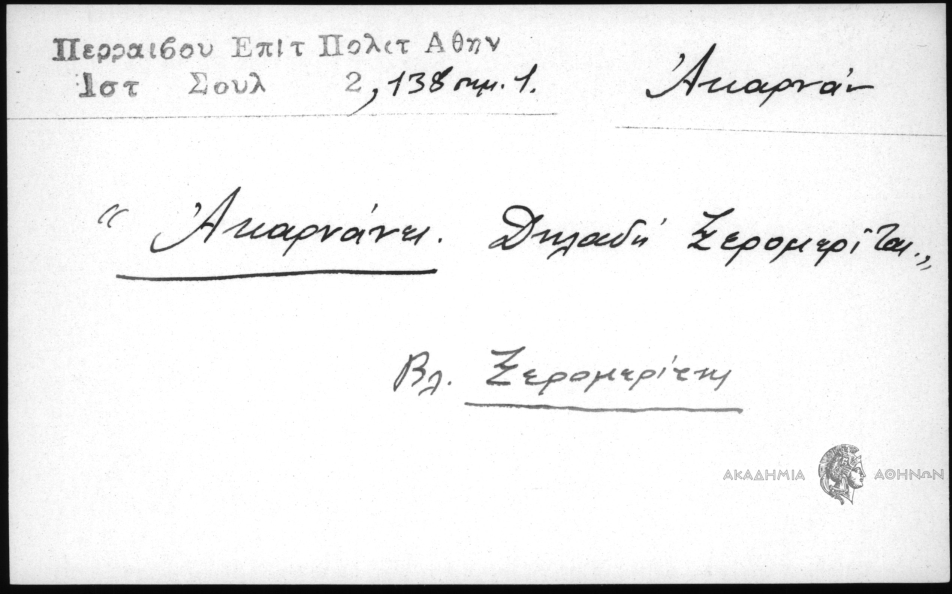 Περραιβου Επιτ Πολιτ Αθην
Ιστ Σουλ 2, 138 σημ. 1.
Ἀκαρνάν
“ Ἀκαρνάνες. Δηλαδή Ξερομερίται.„
Βλ. Ξερομερίτης
ΑΚΑΔΗΜΙΑ ΑΘΗΝΩΝ